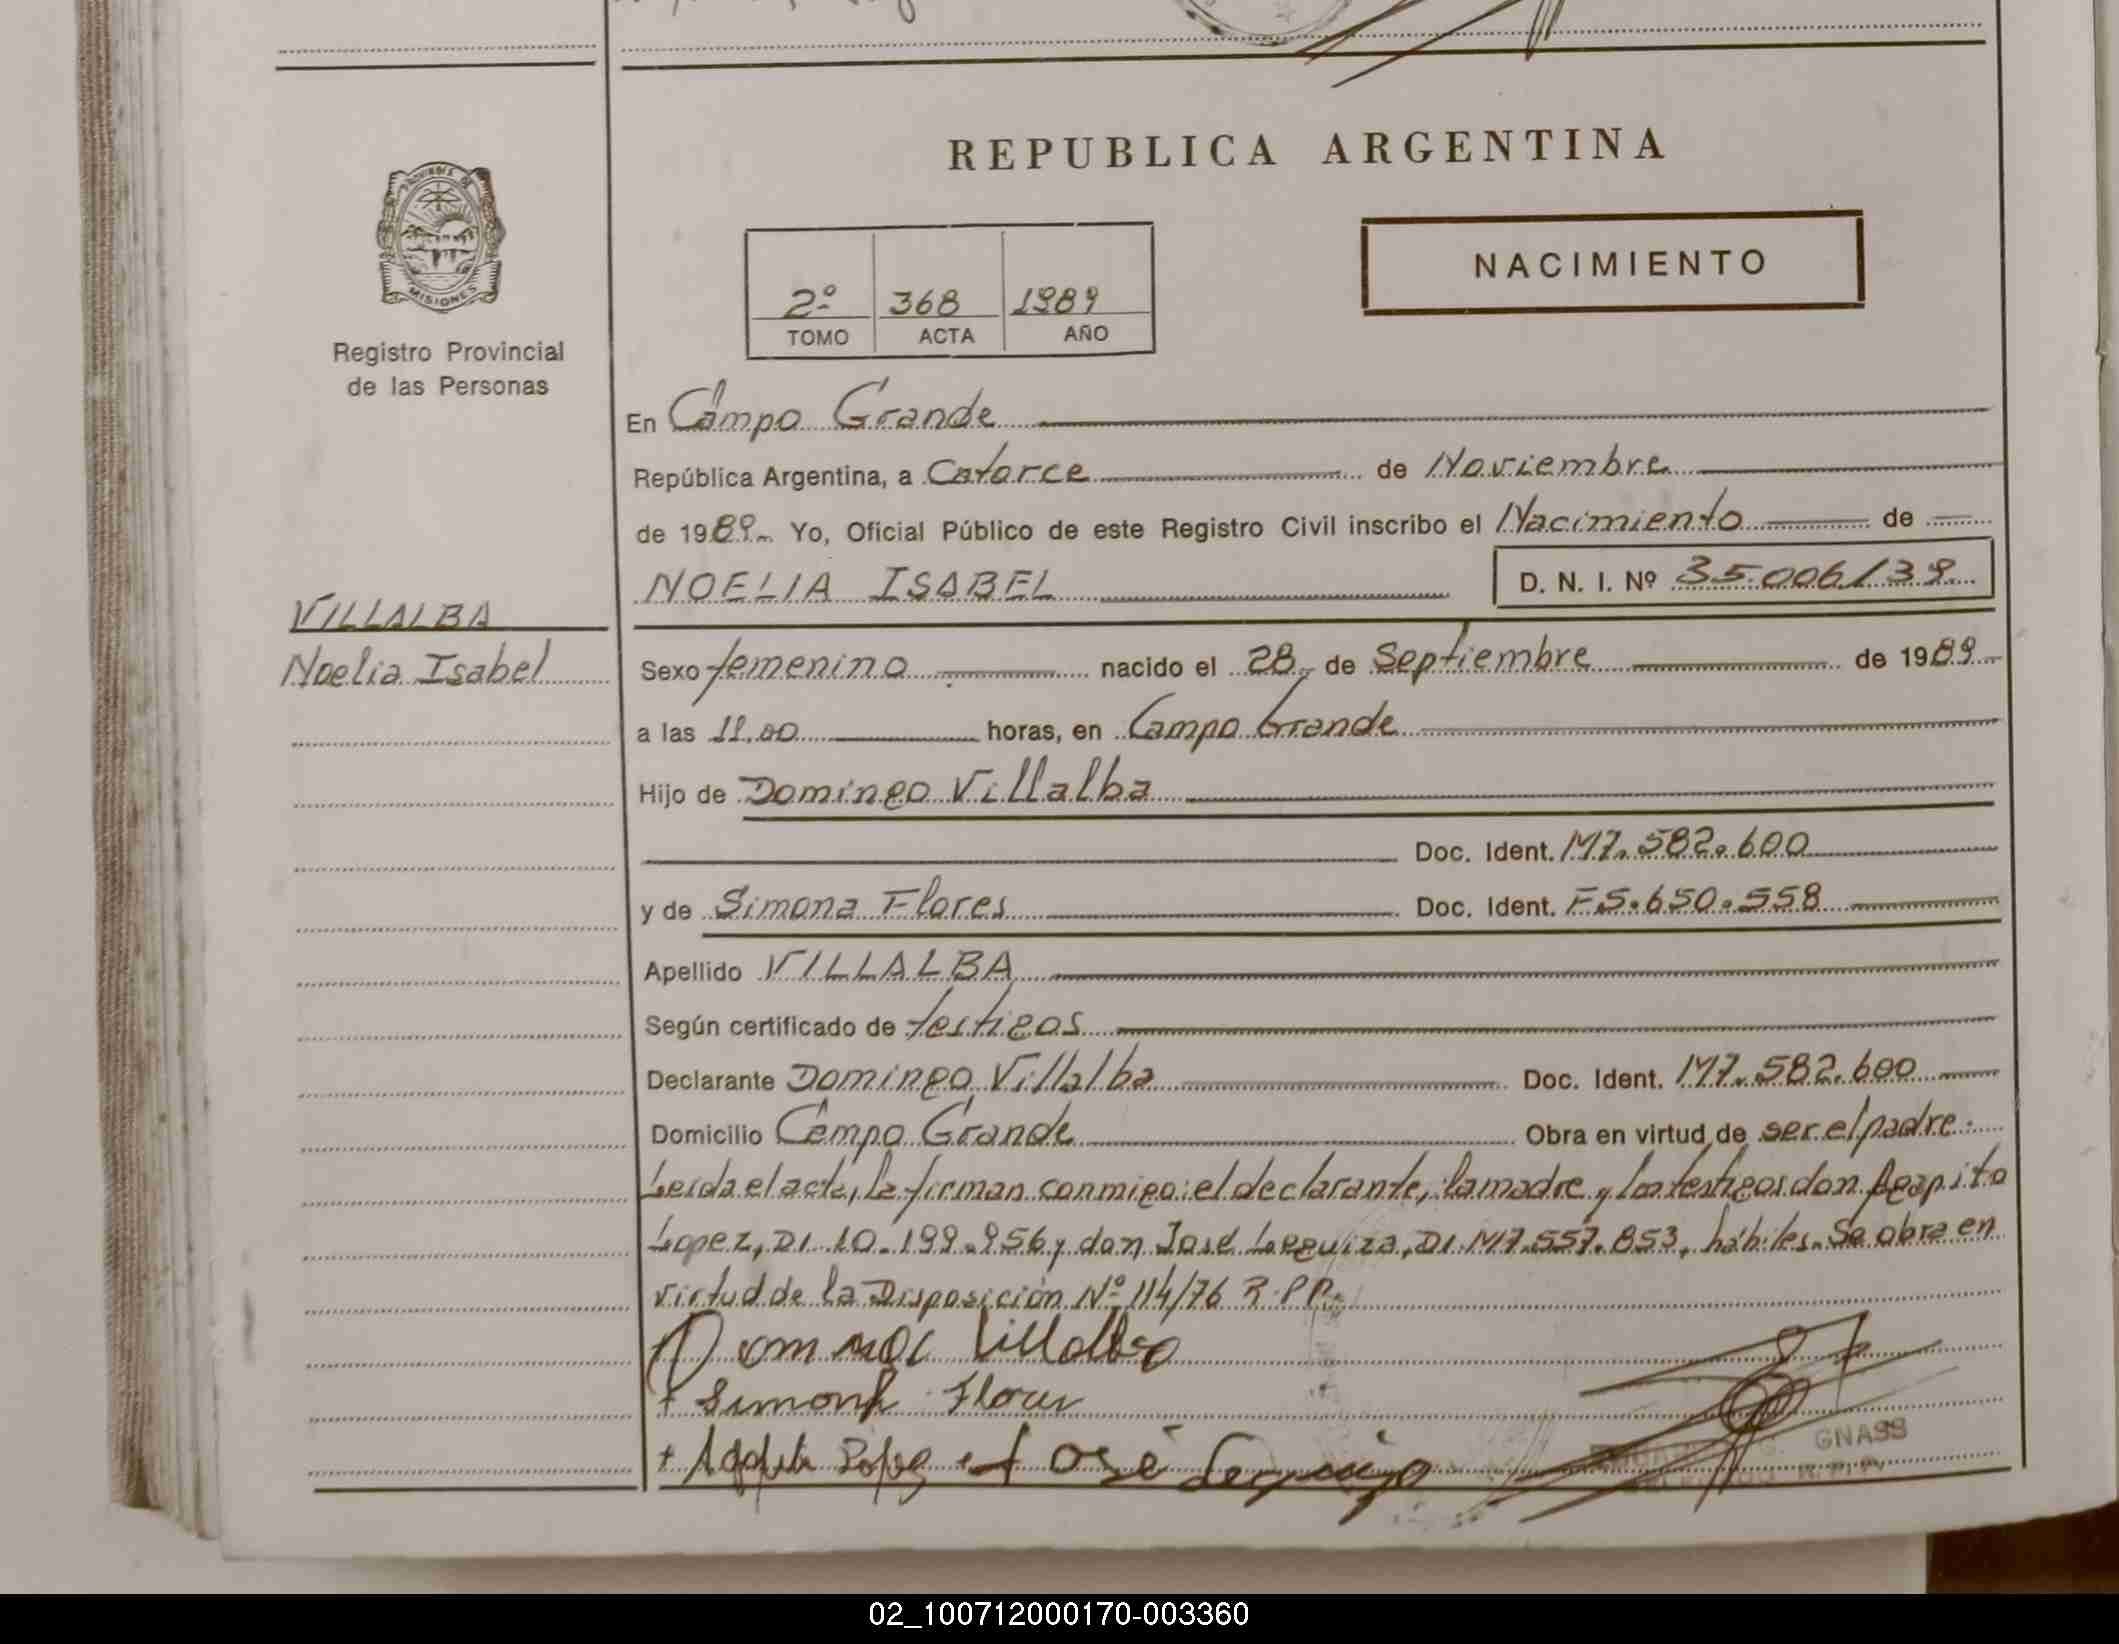 REPUBLICA ARGENTINA
PROVINCIA DE
MISIONES
Registro Provincial
de las Personas
NACIMIENTO
2º 368 1989
TOMO ACTA AÑO
En Campo Grande
República Argentina, a Catorce de Noviembre
de 1989. Yo, Oficial Público de este Registro Civil inscribo el Nacimiento de
NOELIA ISABEL D. N. I. Nº 35.006.139.
VILLALBA
Noelia Isabel
Sexo femenino nacido el 28 de Septiembre de 1989
a las 11.00 horas, en Campo Grande
Hijo de Domingo Villalba
Doc. Ident. M7.582.600
y de Simona Flores Doc. Ident. F5.650.558
Apellido VILLALBA
Según certificado de testigos
Declarante Domingo Villalba Doc. Ident. M7.582.600
Domicilio Campo Grande Obra en virtud de ser el padre.
Leida el acta, la firman conmigo: el declarante, la madre y los testigos don Agapito
Lopez, DI 10.199.956 y don José Leguiza, DI M7.557.853, hábiles. Se obra en
virtud de la Disposición Nº 114/76 R.P.P.
Villalba
Simona Flores
José
GNASS
02_100712000170-003360